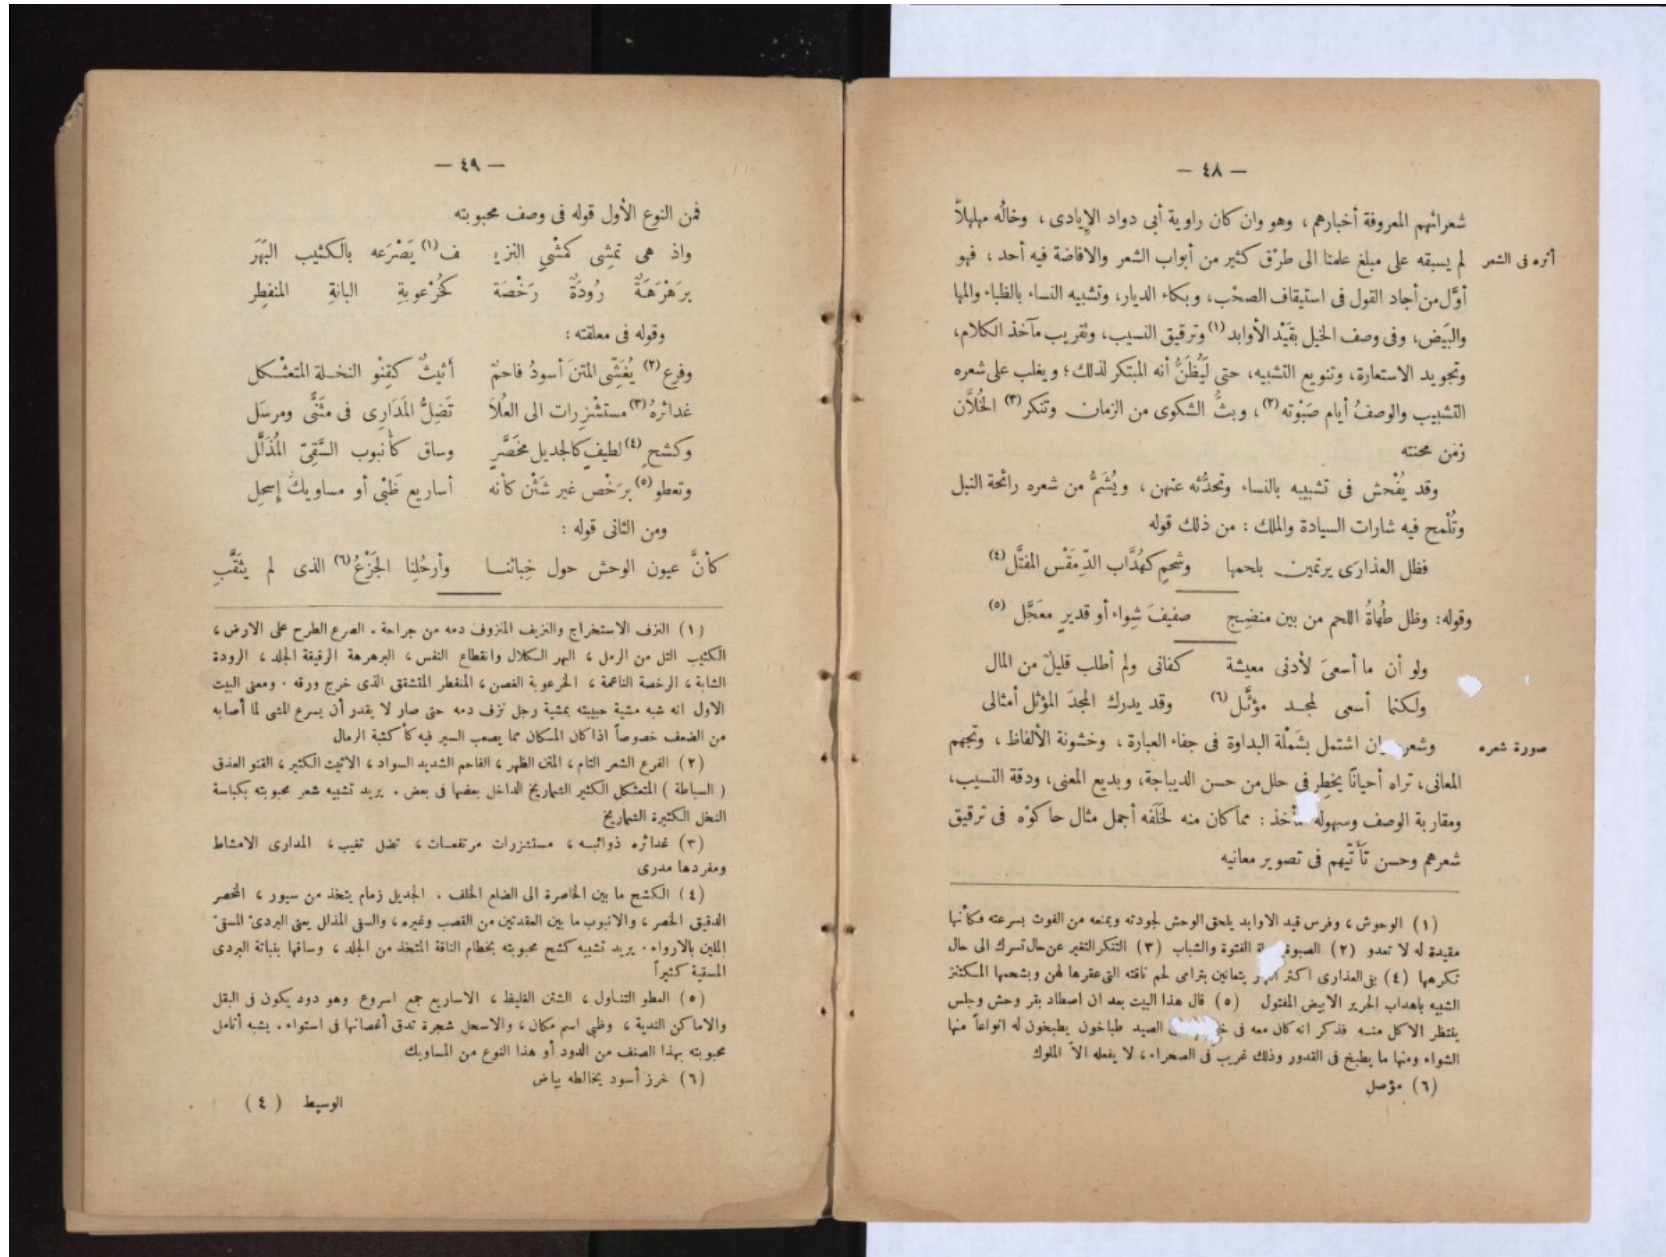 — ٤٨ —
شعرائهم المعروفة أخبارهم ، وهو وان كان راوية أبى دواد الإيادى ، وخالُه مهلهلاً
أثره فى الشعر
لم يسبقه على مبلغ علمنا الى طرْق كثير من أبواب الشعر والافاضة فيه أحد ، فهو
أوَّل من أجاد القول فى استيقاف الصحْب، وبكاء الديار، وتشبيه النساء بالظباء والمها
والبَيض، وفى وصف الخيل بقَيْد الأوابد (١) وترقيق النسيب، وتقريب مآخذ الكلام،
وتجويد الاستعارة، وتنويع التشبيه، حتى لَيُظَنُّ أنه المبتكر لذلك؛ ويغلب على شعره
التشبيب والوصفُ أيام صَبْوته (٢) ، وبثُّ الشكوى من الزمان وتنكر (٣) الخُلاَّن
زمَن محنته
وقد يُفْحش فى تشبيبه بالنساء وتحدُّثه عنهن ، ويُشَمُّ من شعره رائحة النبل
وتُلْمح فيه شارات السيادة والملك : من ذلك قوله
فظل العذارَى يرتمين بلحمها وشحمٍ كهُدَّاب الدِّمَقْس المفتَّل (٤)
وقوله: وظل طُهاةُ اللحم من بين منضِج صفيفَ شِواء أو قديرٍ معَجَّل (٥)
ولو أن ما أسعىَ لأدنى معيشة كفانى ولم أطلب قليلٌ من المال
ولكنما أسعى لمجد مؤثَّل (٦) وقد يدرك المجدَ المؤثل أمثالى
صورة شعره
وشعره ان اشتمل بشَمْلة البداوة فى جفاء العبارة ، وخشونة الألفاظ ، وتجهم
المعانى، تراه أحيانًا يخطِر فى حلل من حسن الديباجة، وبديع المعنى، ودقة النسيب،
ومقاربة الوصف وسهولة المأخذ : مما كان منه لخَلَفه أجمل مثال حاكوْه فى ترقيق
شعرهم وحسن تَأَتّيهم فى تصوير معانيه
(١) الوحوش ، وفرس قيد الاوابد يلحق الوحش لجودته ويمنعه من الفوت بسرعته فكأنها
مقيدة له لا تعدو (٢) الصبوة الفتوة والشباب (٣) التنكر التغير عن حال تسرك الى حال
تكرهها (٤) بقى العذارى اكثر يتعانين بترامى لحم ناقته التى عقرها لهن وبشحمها المكتنز
الشبيه باهداب الحرير الابيض المفتول (٥) قال هذا البيت بعد ان اصطاد بقر وحش وجلس
ينتظر الاكل منه فذكر انه كان معه فى الصيد طباخون يطبخون له انواعاً منها
الشواء ومنها ما يطبخ فى القدور وذلك غريب فى الصحراء ، لا يفعله الاّ الملوك
(٦) مؤصل
— ٤٩ —
فمن النوع الأول قوله فى وصف محبوبته
واذ هى تمشِى كمشْيِ النزيـ ف (١) يَصْرَعه بالكثيب البَهَرَ
برَهْرَهَةٌ رُودَةٌ رَخْصَة كخُرْعوبةِ البانةِ المنفطِر
وقوله فى معلقته :
وفرع (٢) يُغَشّى المتنَ أسودُ فاحمٌ أثيثٌ كقِنْو النخلة المتعثْكل
غدائرهُ (٣) مستشْزِرات الى العُلاَ تَضِلُّ المَدَارِى فى مثَنًّى ومرسَل
وكشحٍ (٤) لطيفٍ كالجديل مخَصَّرٍ وساق كأنبوب السَّقِىّ المُذَلَّل
وتعطو (٥) برَخْص غير شَثْن كأنه أساريع ظَبْى أو مساويكُ إسحِل
ومن الثانى قوله :
كأنَّ عيون الوحش حول خِبائنا وأرحُلِنا الجَزْعُ (٦) الذى لم يثقَّبِ
(١) النزف الاستخراج والنزيف المنزوف دمه من جراحة . الصرع الطرح على الارض ،
الكثيب التل من الرمل ، البهر الكلال وانقطاع النفس ، البرهرهة الرقيقة الجلد ، الرودة
الشابة ، الرخصة الناعمة ، الخرعوبة الغصن ، المنفطر المتشقق الذى خرج ورقه . ومعنى البيت
الاول انه شبه مشية حبيبته بمشية رجل نزف دمه حتى صار لا يقدر أن يسرع المشى لما أصابه
من الضعف خصوصاً اذا كان المكان مما يصعب السير فيه كأكثبة الرمال
(٢) الفرع الشعر التام ، المتن الظهر ، الفاحم الشديد السواد ، الاثيث الكثير ، القنو العذق
( السباطة ) المتعثكل الكثير الشماريخ الداخل بعضها فى بعض . يريد تشبيه شعر محبوبته بكباسة
النخل الكثيرة الشماريخ
(٣) غدائره ذوائبه ، مستشزرات مرتفعات ، تضل تغيب ، المدارى الامشاط
ومفردها مدرى
(٤) الكشح ما بين الخاصرة الى الضلع الخلف . الجديل زمام يتخذ من سيور ، المخصر
الدقيق الخصر ، والانبوب ما بين العقدتين من القصب وغيره ، والسقى المذلل يعنى البردىّ المسقىّ
الملين بالارواء . يريد تشبيه كشح محبوبته بخطام الناقة المتخذ من الجلد ، وساقها بنباتة البردى
المسقية كثيراً
(٥) العطو التناول ، الشثن الغليظ ، الاساريع جمع اسروع وهو دود يكون فى البقل
والاماكن الندية ، وظبي اسم مكان ، والاسحل شجرة تدق أغصانها فى استواء . يشبه أنامل
محبوبته بهذا الصنف من الدود أو هذا النوع من المساويك
(٦) خرز أسود يخالطه بياض
الوسيط ( ٤ )